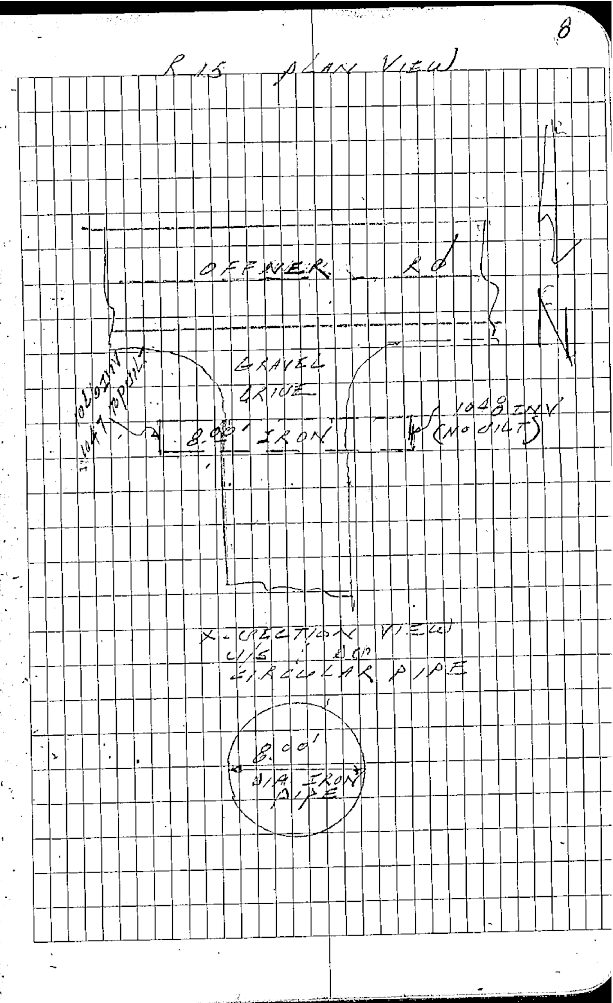 8
R 15 PLAN VIEW
OFFNER RD
GRAVEL
DRIVE
1048 INV
(NO SILT)
8.00' IRON
1047 TOP SILT
X-SECTION VIEW
U/S
CIRCULAR PIPE
8.00'
DIA IRON
PIPE
N